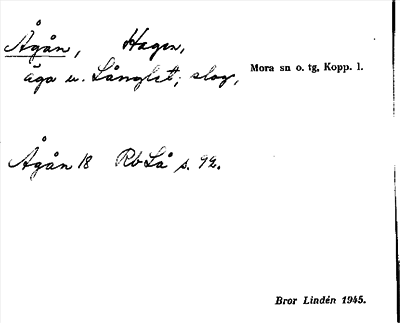 Ågån, Hagen,
äga u. Långlet; slog,
Mora sn o. tg, Kopp. l.
Ågån 18 RbLå s. 92.
Bror Lindén 1945.